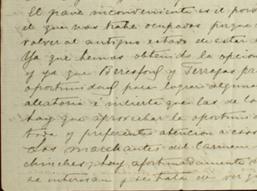 El grave inconveniente es el poco
el que nos trahe ocupados porque
volver al antiguo estado de estar
Ya que hemos obtenido la opcion
y ya que Beresford y Terrazas
oportunidad para lograr alguna
aleatoria é incierta que las de
hay que aprovechar la oportuni
y preferente atencion a
Los marchantes del Carmen
chinches; hay afortunadamente
se interesan y se trata de